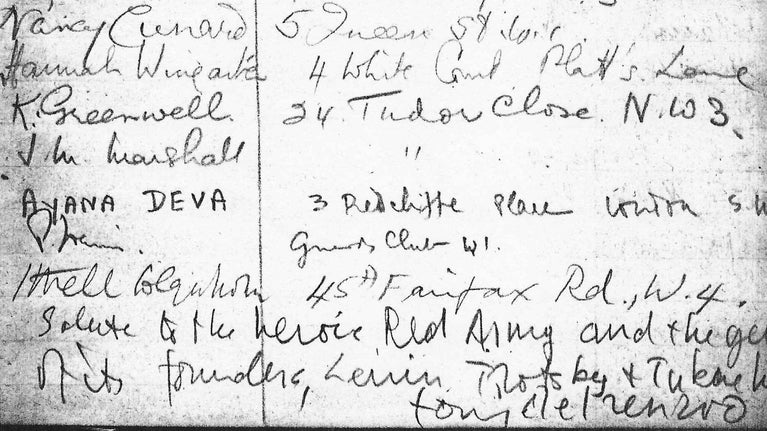 Nancy Cunard 5 Queen St
Hannah Weingarten 4 White Court Platt's Lane
K. Greenwell. 24. Tudor Close. N.W 3.
J. M. Marshall "
AYANA DEVA 3 Redcliffe Place London S.W
Guards Club W1.
Ithell Colquhoun 45A Fairfax Rd., W.4.
Salute to the heroic Red Army and the
of its founders, Lenin Trotsky &
tony del renzio